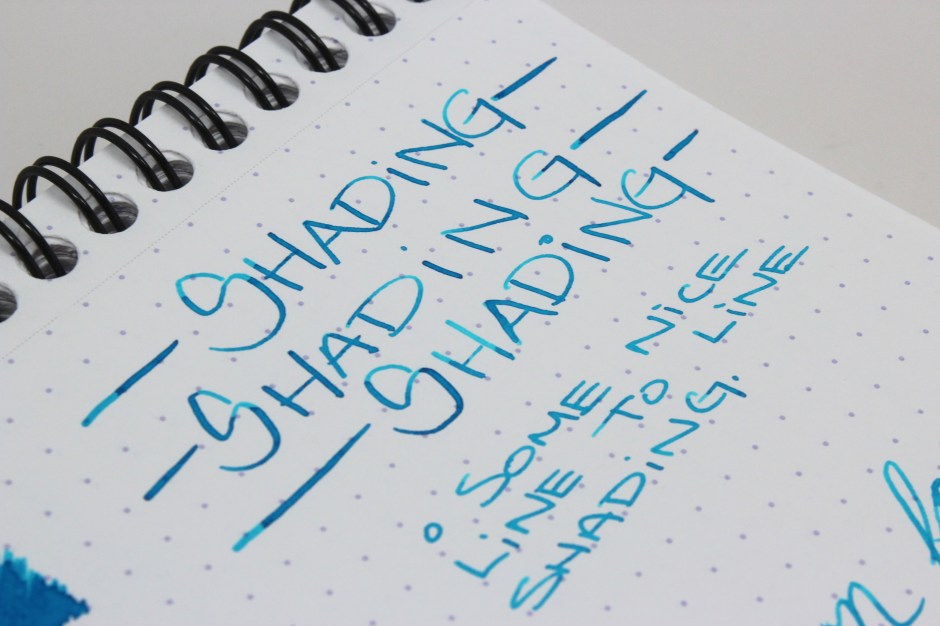 - SHADiNG -
- SHADiNG -
- SHADiNG -
○ SOME NiCE
LiNE TO LiNE
SHADiNG.